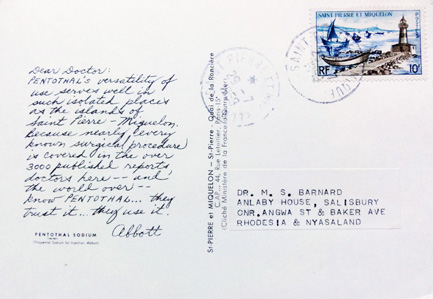 Dear Doctor:
PENTOTHAL's versatility of
use serves well in
such isolated places
as the islands of
Saint Pierre-Miquelon.
Because nearly every
known surgical procedure
is covered in the over
3000 published reports,
doctors here -- and
the world over --
know PENTOTHAL... they
trust it... they use it.
Abbott
PENTOTHAL SODIUM
ST-PIERRE et MIQUELON - St-Pierre - Quai de la Roncière
SAINT-PIERRE ET MIQUELON
RF
10F
DR. M. S. BARNARD
ANLABY HOUSE, SALISBURY
ONR.ANGWA ST & BAKER AVE
RHODESIA & NYASALAND